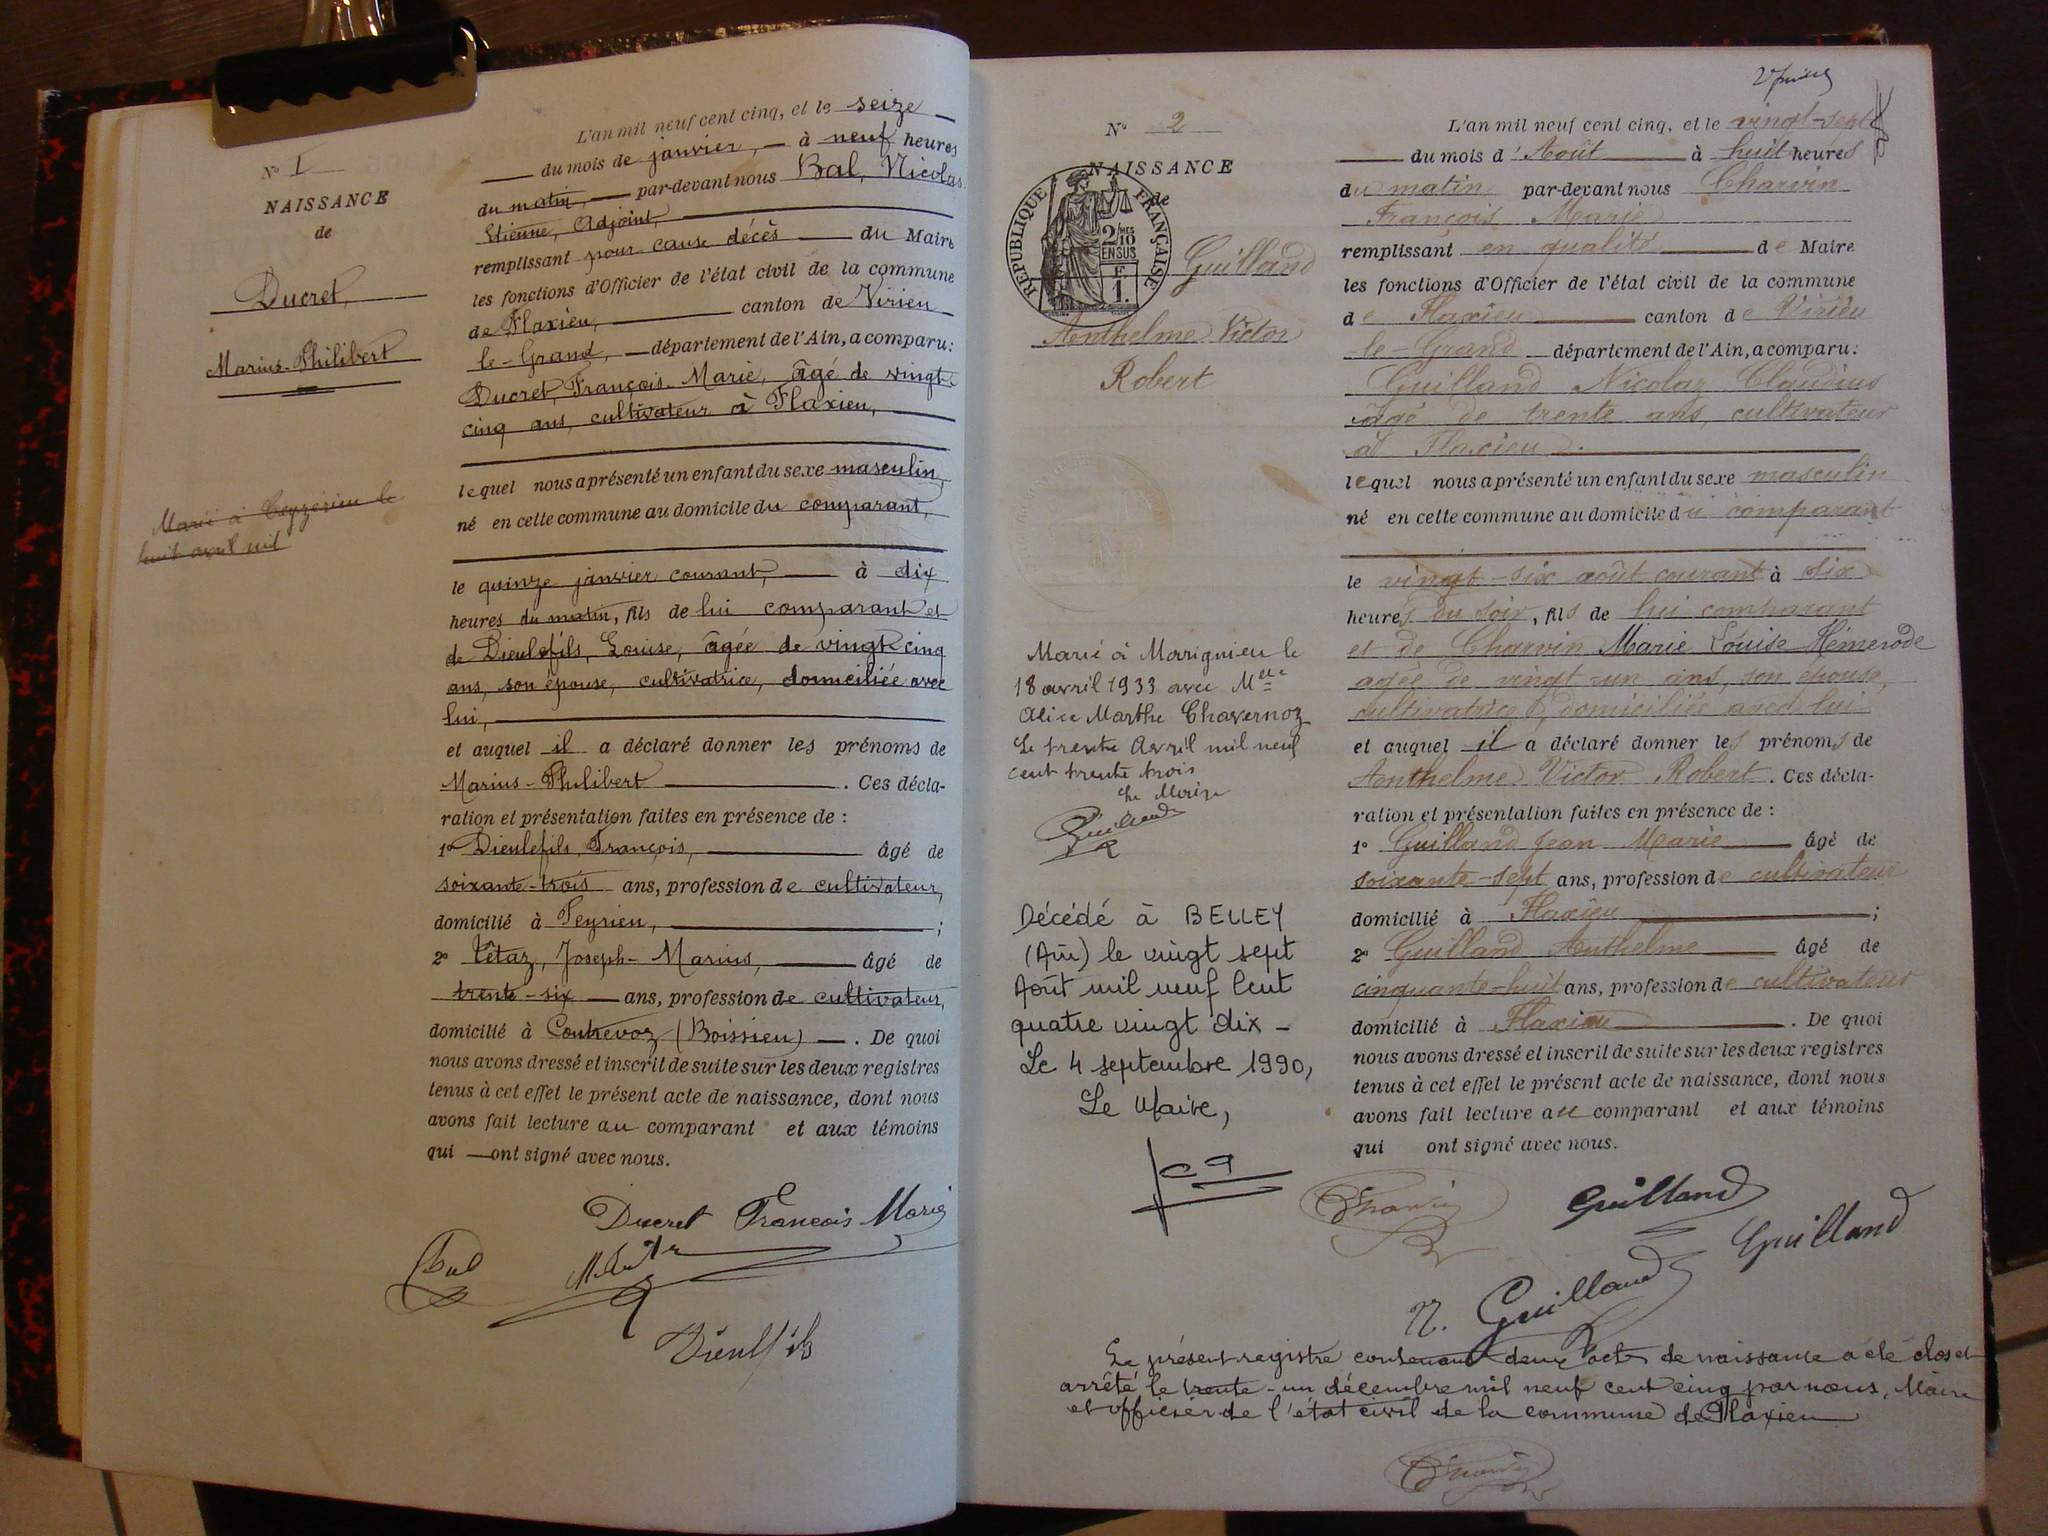 N° 1
NAISSANCE
de
Ducret,
Marius-Philibert
Marié à Ceyzérieu le
huit avril mil
L'an mil neuf cent cinq, et le seize
du mois de janvier, à neuf heures
du matin, par-devant nous Bal, Nicolas
Etienne, Adjoint,
remplissant pour cause décès du Maire
les fonctions d'Officier de l'état civil de la commune
de Flaxieu, canton de Virieu
le-Grand, département de l'Ain, a comparu:
Ducret, François-Marie, âgé de vingt-
cinq ans, cultivateur à Flaxieu,
lequel nous a présenté un enfant du sexe masculin,
né en cette commune au domicile du comparant,
le quinze janvier courant, à dix
heures du matin, fils de lui comparant et
de Dieulefils, Louise, âgée de vingt cinq
ans, son épouse, cultivatrice, domiciliée avec
lui,
et auquel il a déclaré donner les prénoms de
Marius-Philibert. Ces décla-
ration et présentation faites en présence de :
1° Dieulefils, François, âgé de
soixante-trois ans, profession de cultivateur,
domicilié à Peyrieu, ;
2° Têtaz, Joseph-Marius, âgé de
trente-six ans, profession de cultivateur,
domicilié à Contrevoz (Boissieu). De quoi
nous avons dressé et inscrit de suite sur les deux registres
tenus à cet effet le présent acte de naissance, dont nous
avons fait lecture au comparant et aux témoins
qui ont signé avec nous.
Ducret François Marie
Bal
Dieulfils
N° 2
NAISSANCE
de
RÉPUBLIQUE FRANÇAISE
2/10
EN SUS
F.
1.
Guilland
Anthelme Victor
Robert
Marié à Marignieu le
18 avril 1933 avec Melle
Alice Marthe Chavernoz
Le trente Avril mil neuf
cent trente trois
Le Maire
Guilland
Décédé à BELLEY
(Ain) le vingt sept
Août mil neuf cent
quatre vingt dix -
Le 4 septembre 1990,
Le Maire,
L'an mil neuf cent cinq, et le vingt-sept
du mois d'Août à huit heures
du matin par-devant nous Charvin
François Marie
remplissant en qualité de Maire
les fonctions d'Officier de l'état civil de la commune
de Flaxieu canton de Virieu
le-Grand département de l'Ain, a comparu:
Guilland Nicolas Claudius
âgé de trente ans, cultivateur
à Flaxieu.
lequel nous a présenté un enfant du sexe masculin
né en cette commune au domicile du comparant
le vingt-six août courant à six
heures du soir, fils de lui comparant
et de Charvin Marie Louise Hémerode
agée de vingt-un ans, son épouse,
cultivatrice, domiciliée avec lui
et auquel il a déclaré donner les prénoms de
Anthelme Victor Robert. Ces décla-
ration et présentation faites en présence de :
1° Guilland Jean Marie âgé de
soixante-sept ans, profession de cultivateur
domicilié à Flaxieu ;
2° Guilland Anthelme âgé de
cinquante-huit ans, profession de cultivateur
domicilié à Flaxieu. De quoi
nous avons dressé et inscrit de suite sur les deux registres
tenus à cet effet le présent acte de naissance, dont nous
avons fait lecture au comparant et aux témoins
qui ont signé avec nous.
Charvin Guilland
Guilland
N. Guilland
Le présent registre contenant deux acts de naissance a été clos et
arrêté le trente-un décembre mil neuf cent cinq par nous, Maire
et officier de l'état civil de la commune de Flaxieu
Charvin